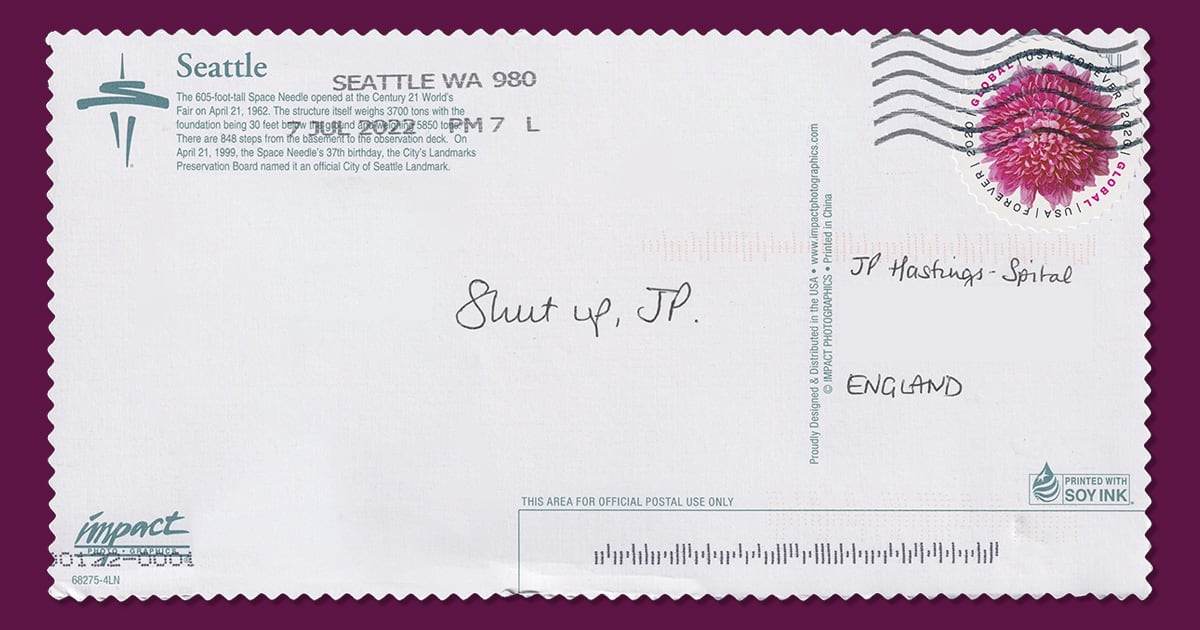 Seattle
The 605-foot-tall Space Needle opened at the Century 21 World's
Fair on April 21, 1962. The structure itself weighs 3700 tons with the
foundation being 30 feet below the ground and weighing 5850 tons.
There are 848 steps from the basement to the observation deck. On
April 21, 1999, the Space Needle's 37th birthday, the City's Landmarks
Preservation Board named it an official City of Seattle Landmark.
SEATTLE WA 980
7 JUL 2022 PM 7 L
GLOBAL | USA | FOREVER | 2020 | GLOBAL | USA | FOREVER | 2020 |
Shut up, JP.
Proudly Designed & Distributed in the USA • www.impactphotographics.com
© IMPACT PHOTOGRAPHICS • Printed in China
JP Hastings-Spital
ENGLAND
THIS AREA FOR OFFICIAL POSTAL USE ONLY
PRINTED WITH
SOY INK
impact
PHOTO • GRAPHICS
68275-4LN